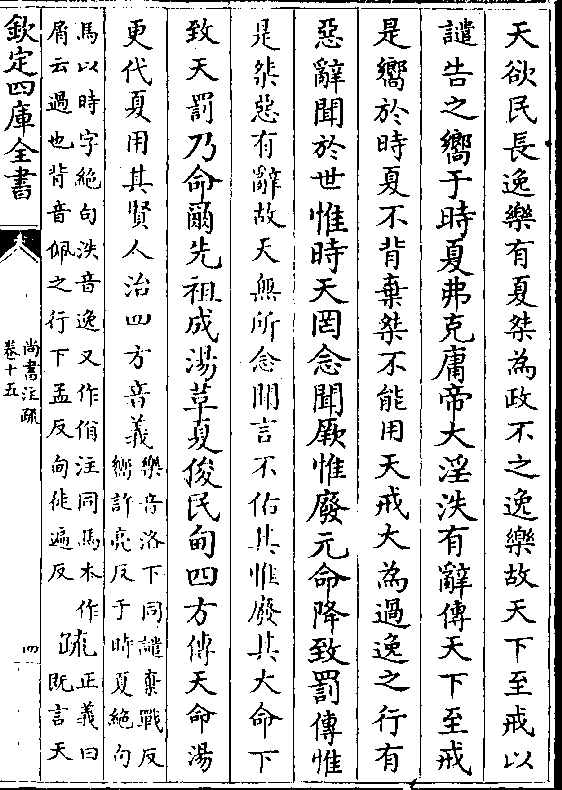 天欲民長逸樂有夏桀為政不之逸樂故天下至戒以
譴告之嚮于時夏弗克庸帝大淫泆有辭傳天下至戒
是嚮於時夏不背棄桀不能用天戒大為過逸之行有
惡辭聞於世惟時天罔念聞厥惟廢元命降致罰傳惟
是桀惡有辭故天無所念聞言不佑其惟廢其大命下
致天罰乃命爾先祖成湯革夏俊民甸四方傳天命湯
更代夏用其賢人治四方音義樂音洛下同譴棄戰反
嚮許亮反于時夏絶句
馬以時字絶句泆音逸又作佾注同馬本作
屑云過也背音佩之行下孟反甸徙遍反
疏正義曰
既言天
欽定四庫全書
尚書注疏
卷十五
四